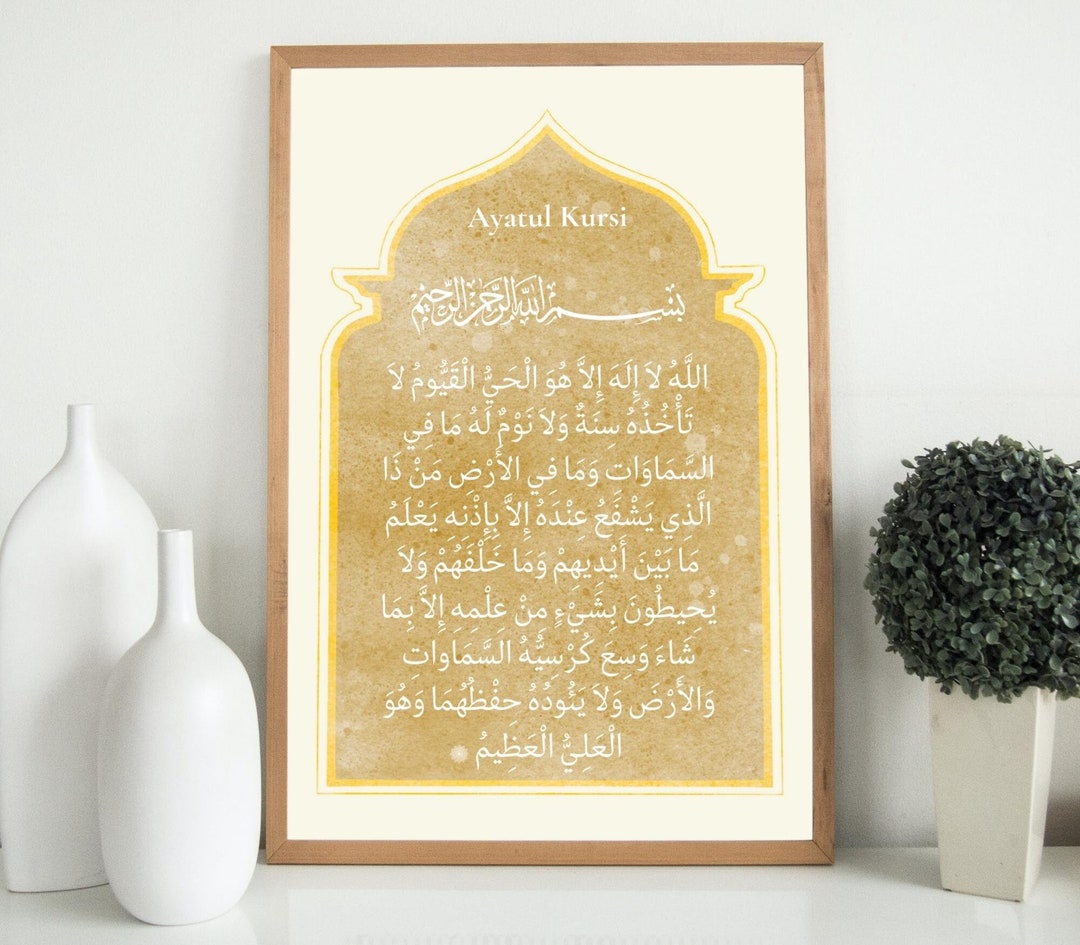 Ayatul Kursi
بسم الله الرحمن الرحيم
اللَّهُ لاَ إِلَهَ إِلاَّ هُوَ الْحَيُّ الْقَيُّومُ لاَ
تَأْخُذُهُ سِنَةٌ وَلاَ نَوْمٌ لَهُ مَا فِي
السَّمَاوَاتِ وَمَا فِي الأَرْضِ مَنْ ذَا
الَّذِي يَشْفَعُ عِنْدَهُ إِلاَّ بِإِذْنِهِ يَعْلَمُ
مَا بَيْنَ أَيْدِيهِمْ وَمَا خَلْفَهُمْ وَلاَ
يُحِيطُونَ بِشَيْءٍ مِنْ عِلْمِهِ إِلاَّ بِمَا
شَاءَ وَسِعَ كُرْسِيُّهُ السَّمَاوَاتِ
وَالأَرْضَ وَلاَ يَئُودُهُ حِفْظُهُمَا وَهُوَ
الْعَلِيُّ الْعَظِيمُ